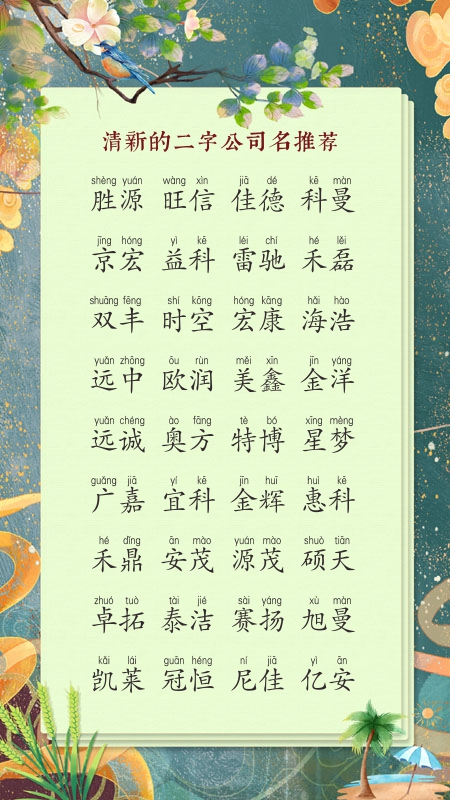 清新的二字公司名推荐
shèng yuán wàng xìn jiā dé kē màn
胜源 旺信 佳德 科曼
jīng hóng yì kē léi chí hé lěi
京宏 益科 雷驰 禾磊
shuāng fēng shí kōng hóng kāng hǎi hào
双丰 时空 宏康 海浩
yuǎn zhōng ōu rùn měi xīn jīn yáng
远中 欧润 美鑫 金洋
yuǎn chéng ào fāng tè bó xīng mèng
远诚 奥方 特博 星梦
guǎng jiā yí kē jīn huī huì kē
广嘉 宜科 金辉 惠科
hé dǐng ān mào yuán mào shuò tiān
禾鼎 安茂 源茂 硕天
zhuó tuò tài jié sài yáng xù màn
卓拓 泰洁 赛扬 旭曼
kǎi lái guān héng ní jiā yì ān
凯莱 冠恒 尼佳 亿安